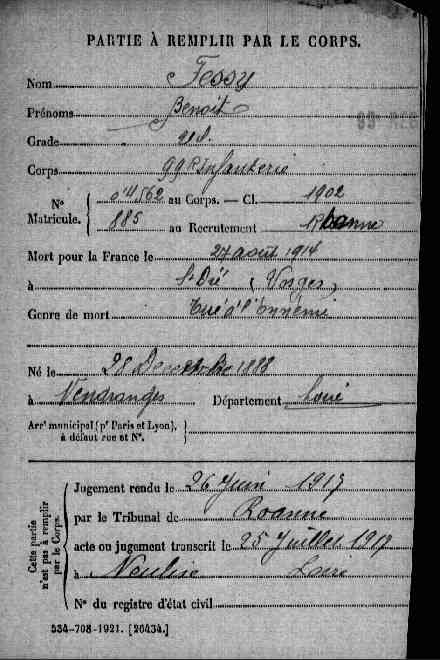 PARTIE À REMPLIR PAR LE CORPS.
Nom Fessy
Prénoms Benoit
Grade
Corps 99e Infanterie
Nº Matricule. { 04562 au Corps. — Cl. 1902
885 au Recrutement Roanne
Mort pour la France le 27 août 1914
à St Dié (Vosges)
Genre de mort Tué à l'Ennemi
Né le 28 Decembre 188
à Vendranges Département Loire
Arrt municipal (pr Paris et Lyon),
à défaut rue et Nº.
Cette partie
n'est pas à remplir
par le Corps.
Jugement rendu le 26 Juin 1917
par le Tribunal de Roanne
acte ou jugement transcrit le 25 Juillet 1917
à Neulise Loire
Nº du registre d'état civil
534-708-1921. [26434.]